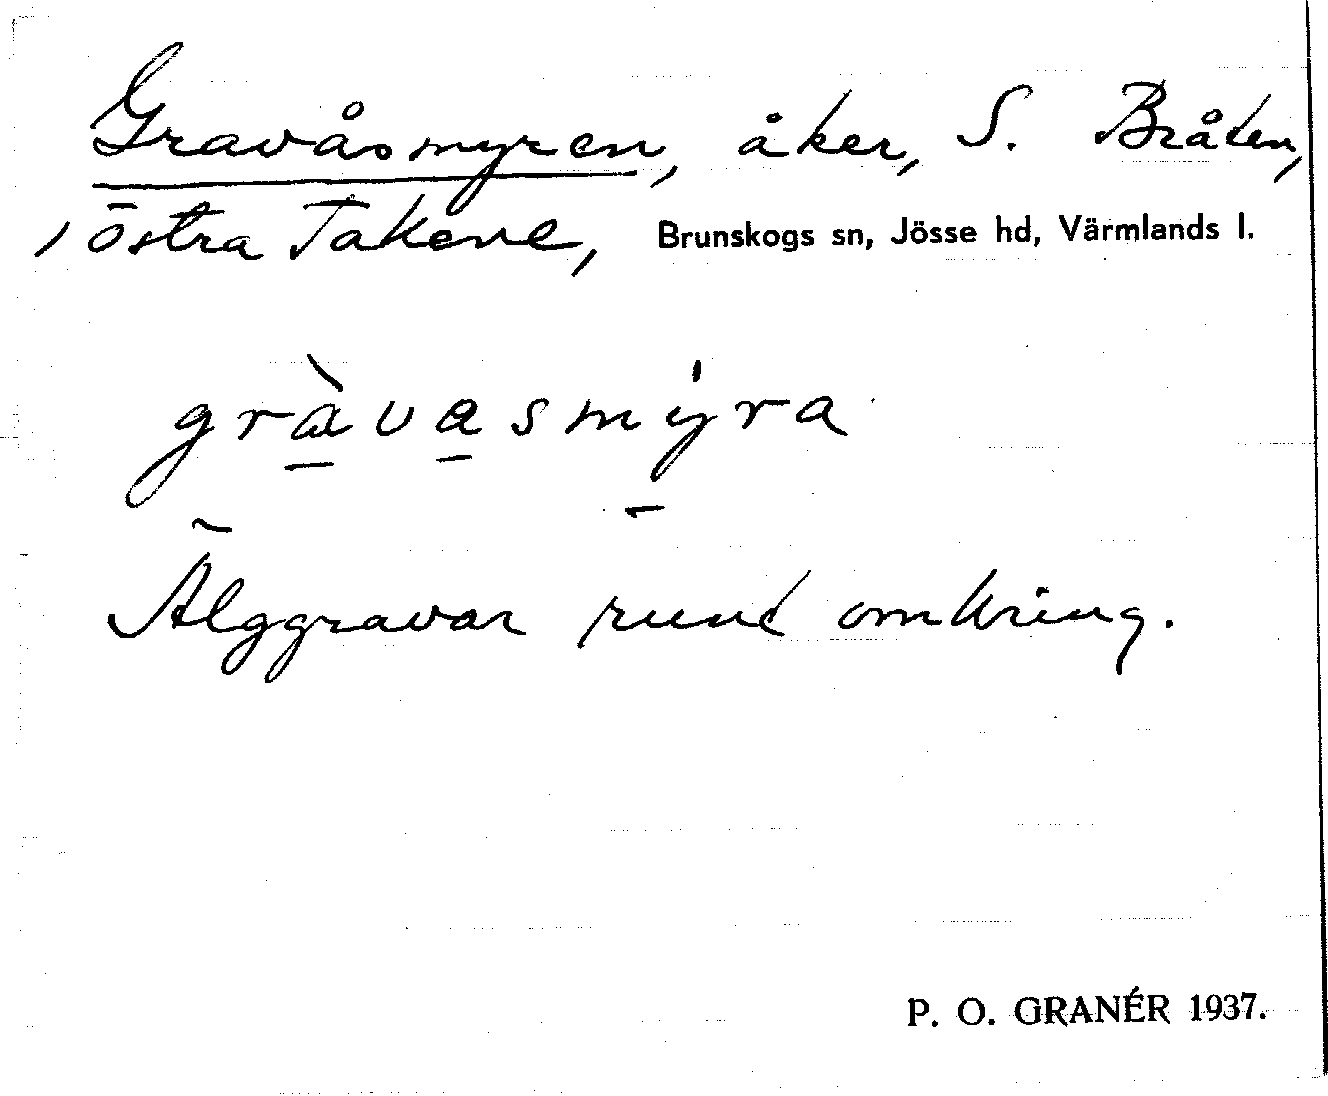 Gravåsmyren, åker, S. Bråten,
östra Takene, Brunskogs sn, Jösse hd, Värmlands l.
gràvasmýra
Älggravar runt omkring.
P. O. GRANÉR 1937.